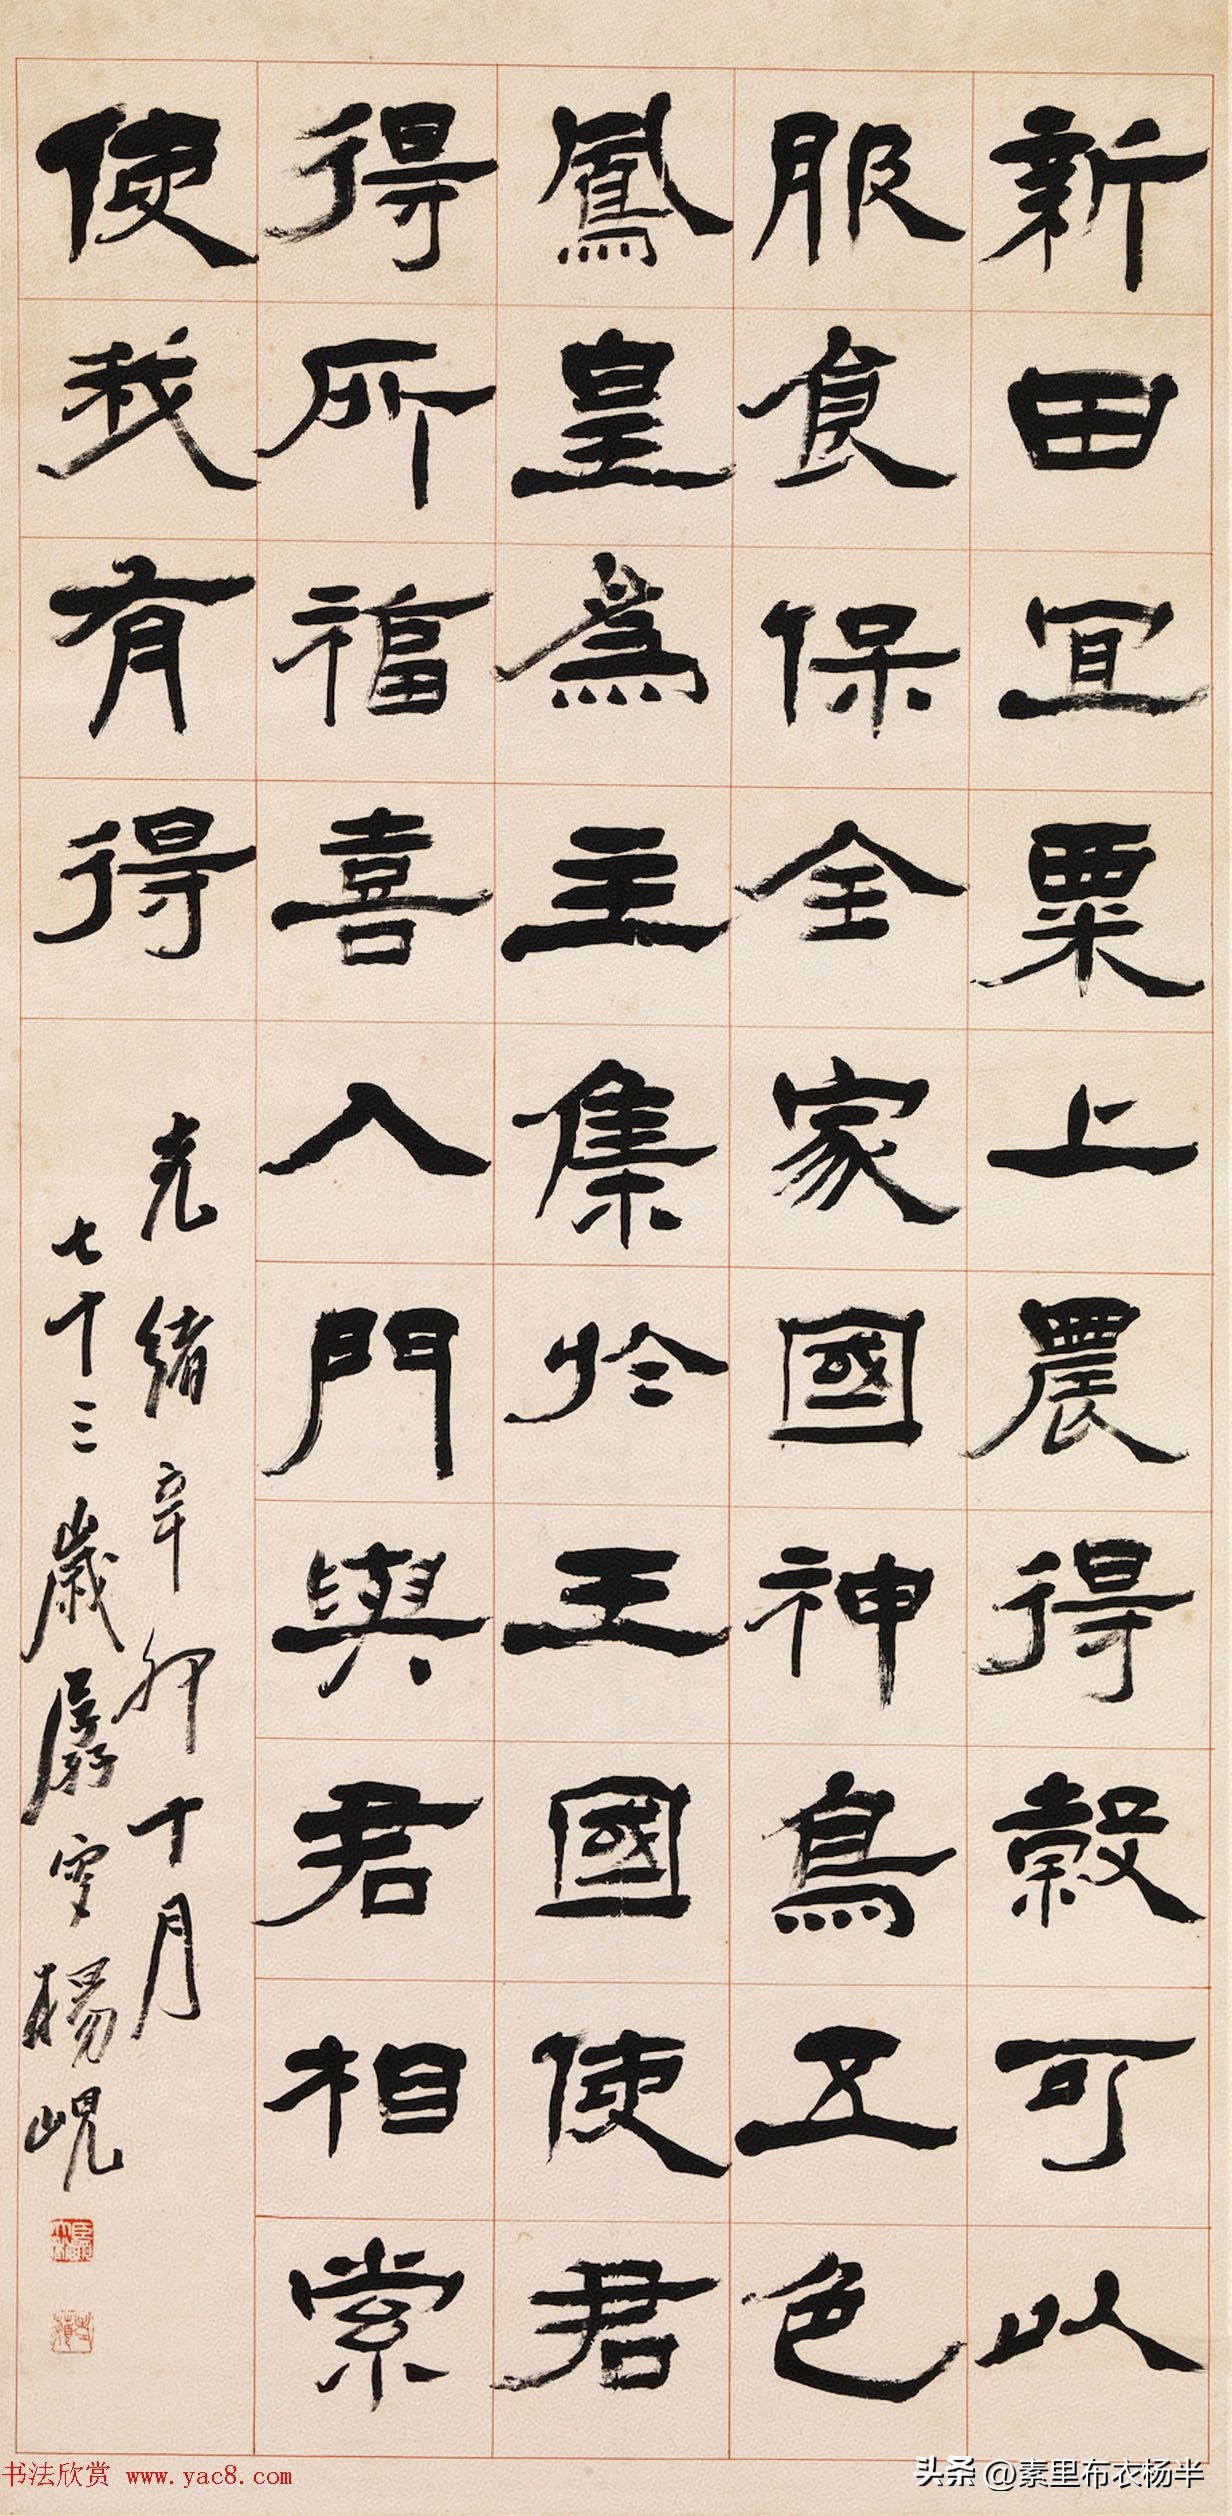 新田宜粟上農得穀可以
服食保全家國神鳥五色
鳳皇爲主集於王國使君
得所福喜入門與君相索
使我有得
光緒辛卯十月
七十三歲孱叟楊峴
书法欣赏 www.yac8.com
头条 @素里布衣杨半